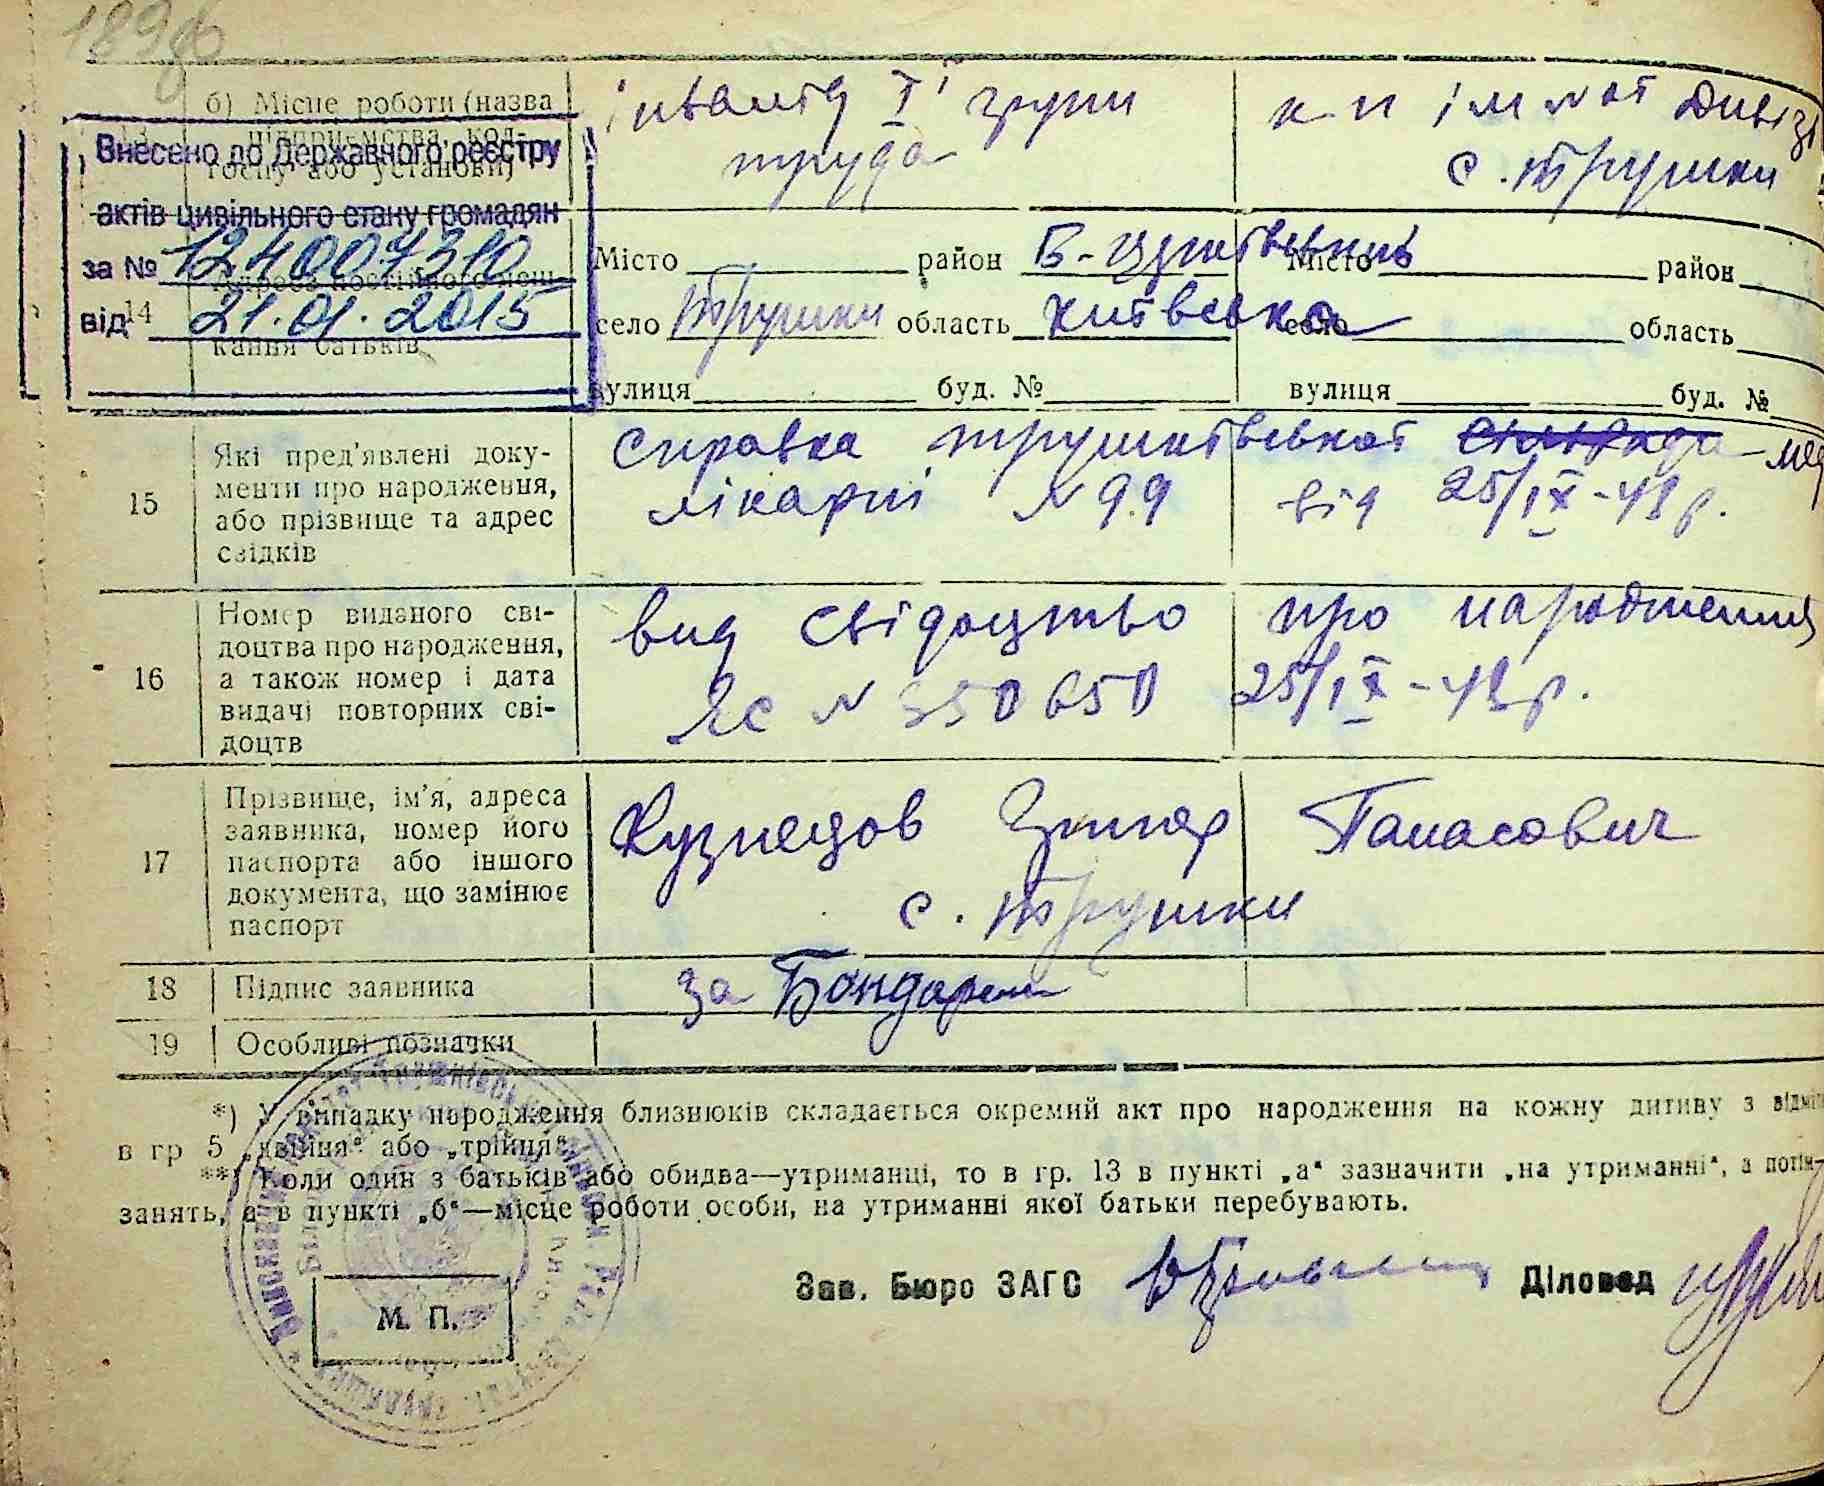 189
б) Місце роботи (назва інвалід І групи к-п ім
13 підприємства, кол- труда с. Трушки
госпу або установи)
Внесено до Державного реєстру
актів цивільного стану громадян
за № 124007310
від 21.01.2015
14 Адреса постійного меш-
кання батьків
Місто район Б-Церківський Місто район
село Трушки область Київська село область
вулиця буд. № вулиця буд. №
15 Які пред'явлені доку-
менти про народження,
або прізвище та адрес
свідків
справка Трушківської
лікарні N 99 від 25/IX-48 р.
16 Номер виданого сві-
доцтва про народження,
а також номер і дата
видачі повторних сві-
доцтв
вид свідоцтво про народження
ЯС N 350650 25/IX-48 р.
17 Прізвище, ім'я, адреса
заявника, номер його
паспорта або іншого
документа, що замінює
паспорт
Кузнецов Панасович
с. Трушки
18 Підпис заявника за Бондарен
19 Особливі позначки
*) У випадку народження близнюків складається окремий акт про народження на кожну дитину з
в гр 5 „двійня“ або „трійня“.
**) Коли один з батьків або обидва—утриманці, то в гр. 13 в пункті „а“ зазначити „на утриманні“, а
занять, а в пункті „б“—місце роботи особи, на утриманні якої батьки перебувають.
Зав. Бюро ЗАГС Діловод
М. П.